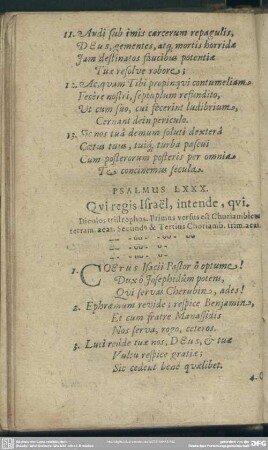 11. Audi sub imis carcerum repagulis,
Deus, gementes, atq; mortis horridæ
Jam destinatos faucibus potentiæ
Tuæ resolve robore;
12. Ac, quam Tibi propinqvi contumeliam
Fecere nostri, septuplum refundito,
Ut cum suo, cui fecerint ludibrium,
Cernant dein periculo.
13. Sic nos tuâ demum soluti dexterâ
Cœtus tuus, tuiq; turba pascui
Cum posterorum posteris per omnia
Te concinemus secula.
PSALMUS LXXX.
Qvi regis Israël, intende, qvi.
Dicolos tristrophos. Primus versus est Choriambicus
tetram. acat. Secundus & Tertius Choriamb. trim. acat.
1. COetus Isacii Pastor ô optume!
Dux ô Josephidûm potens,
Qui servas Cherubin, ades!
2. Ephræmum revide; respice Benjamin,
Et cum fratre Manassidis
Nos serva, rogo, ceteros.
3. Luci redde tuæ nos, Deus, & tuæ
Vultu respice gratiæ;
Sic cedent bene quælibet.